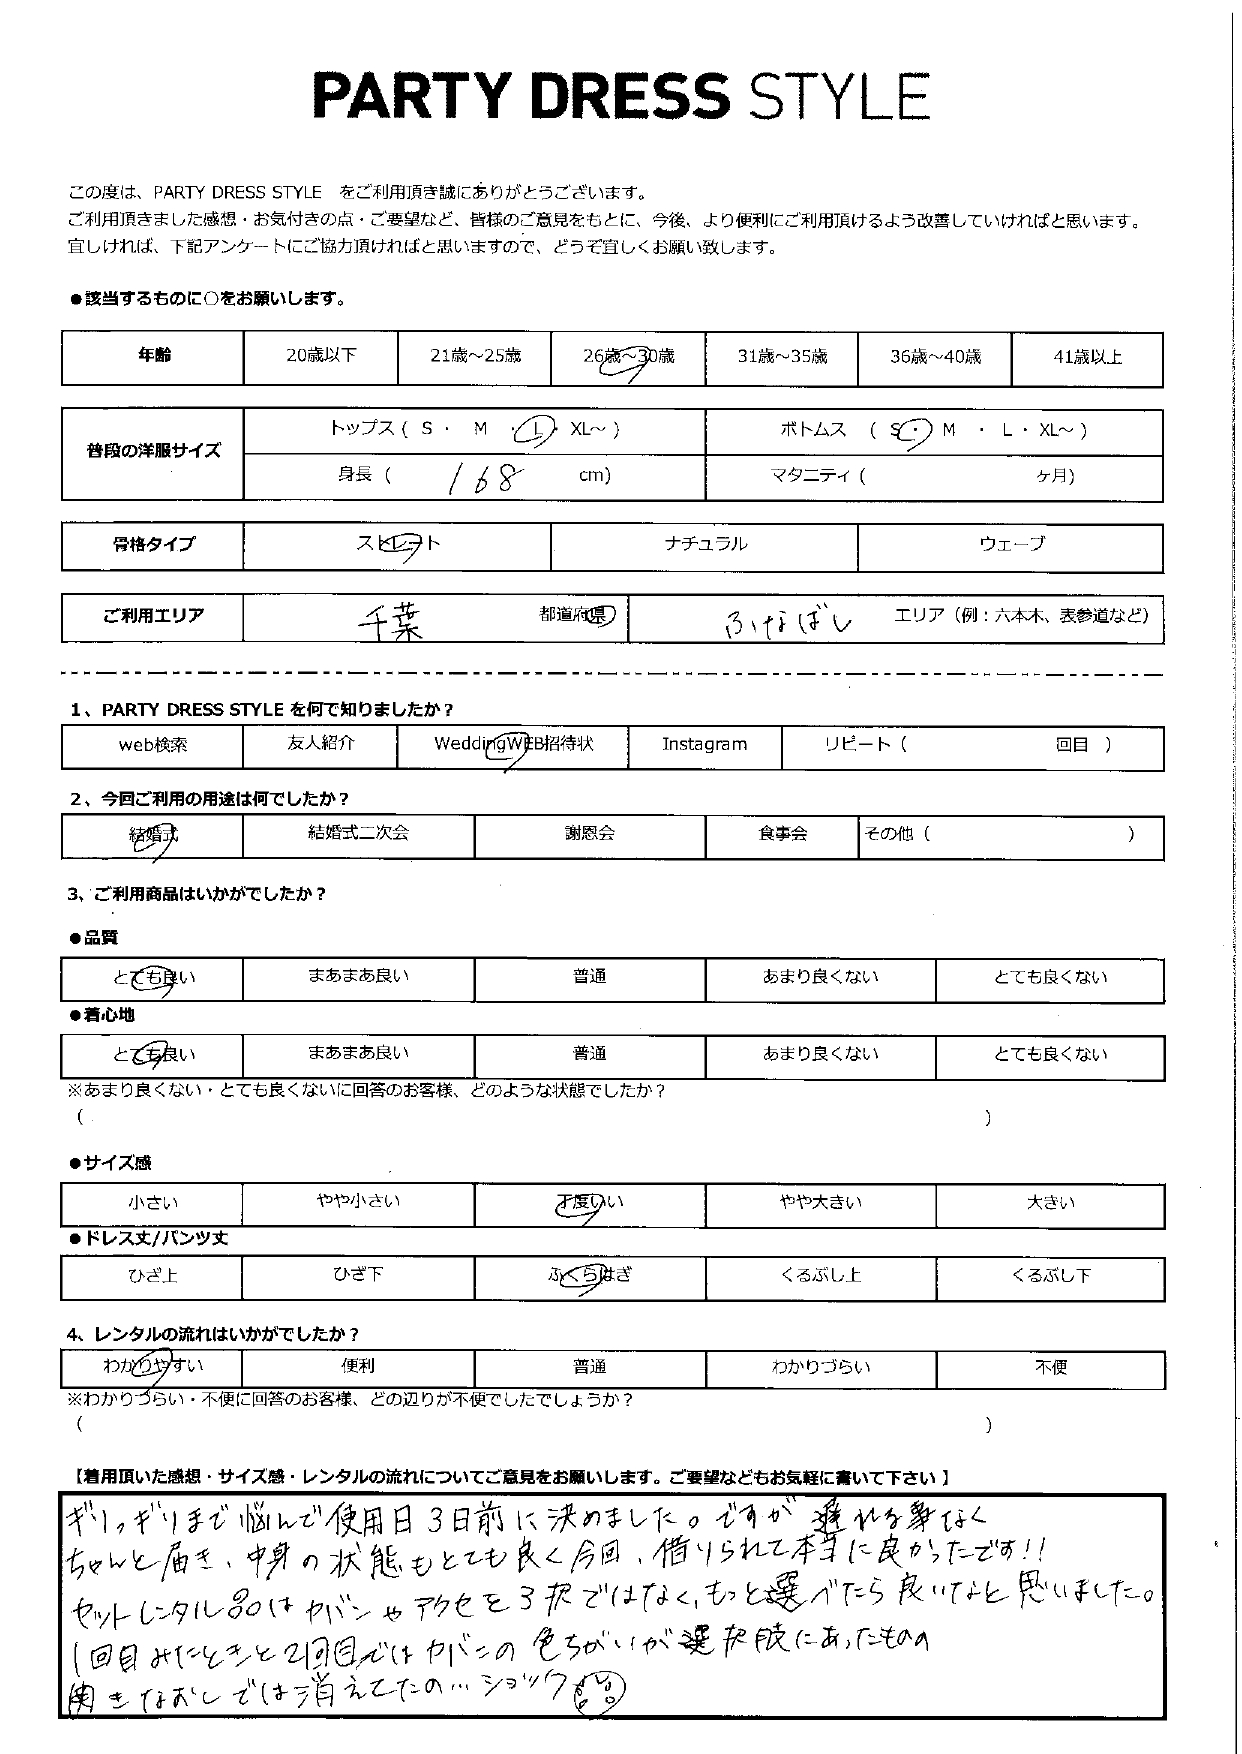 PARTY DRESS STYLE
この度は、PARTY DRESS STYLE　をご利用頂き誠にありがとうございます。
ご利用頂きました感想・お気付きの点・ご要望など、皆様のご意見をもとに、今後、より便利にご利用頂けるよう改善していければと思います。
宜しければ、下記アンケートにご協力頂ければと思いますので、どうぞ宜しくお願い致します。
●該当するものに○をお願いします。
年齢 20歳以下 21歳～25歳 26歳～30歳 31歳～35歳 36歳～40歳 41歳以上
普段の洋服サイズ トップス ( S ・ M ・ L ・ XL～ ) ボトムス ( S ・ M ・ L ・ XL～ )
身長 ( 168 cm) マタニティ ( ヶ月)
骨格タイプ ストレート ナチュラル ウェーブ
ご利用エリア 千葉 都道府県 ふなばし エリア（例：六本木、表参道など）
1、PARTY DRESS STYLE を何で知りましたか？
web検索 友人紹介 WeddingWEB招待状 Instagram リピート ( 回目 )
2、今回ご利用の用途は何でしたか？
結婚式 結婚式二次会 謝恩会 食事会 その他 ( )
3、ご利用商品はいかがでしたか？
●品質
とても良い まあまあ良い 普通 あまり良くない とても良くない
●着心地
とても良い まあまあ良い 普通 あまり良くない とても良くない
※あまり良くない・とても良くないに回答のお客様、どのような状態でしたか？
( )
●サイズ感
小さい やや小さい 丁度いい やや大きい 大きい
●ドレス丈/パンツ丈
ひざ上 ひざ下 ふくらはぎ くるぶし上 くるぶし下
4、レンタルの流れはいかがでしたか？
わかりやすい 便利 普通 わかりづらい 不便
※わかりづらい・不便に回答のお客様、どの辺りが不便でしたでしょうか？
( )
【着用頂いた感想・サイズ感・レンタルの流れについてご意見をお願いします。ご要望などもお気軽に書いて下さい 】
ギリッギリまで悩んで使用日3日前に決めました。ですが遅れる事なく
ちゃんと届き、中身の状態もとても良く今回、借りられて本当に良かったです!!
セットレンタル品はカバンやアクセを3択ではなく、もっと選べたら良いなと思いました。
1回目みたときと2回目ではカバンの色ちがいが選択肢にあったものの
開きなおしでは消えてたの…ショック